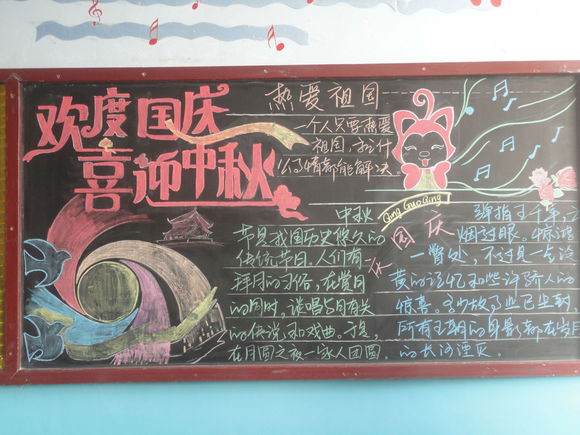 欢度国庆
喜迎中秋
热爱祖国
一个人只要热爱
祖国，
么事情都能解决。
中秋
节是我国历史悠久的
传统节日。人们有
拜月的习俗，在赏月
的同时，谈唱与月有关
的传说和戏曲。于是，
在月圆之夜一家人团圆。
Qing Guo Qing
国庆
弹指五千年，
烟过眼。惊波
一瞥处，不过是一片泛
黄的记忆和些许阶人的
惊喜。多少故事业已尘封，
所有王朝的身影都在岁月
的长河湮灭。